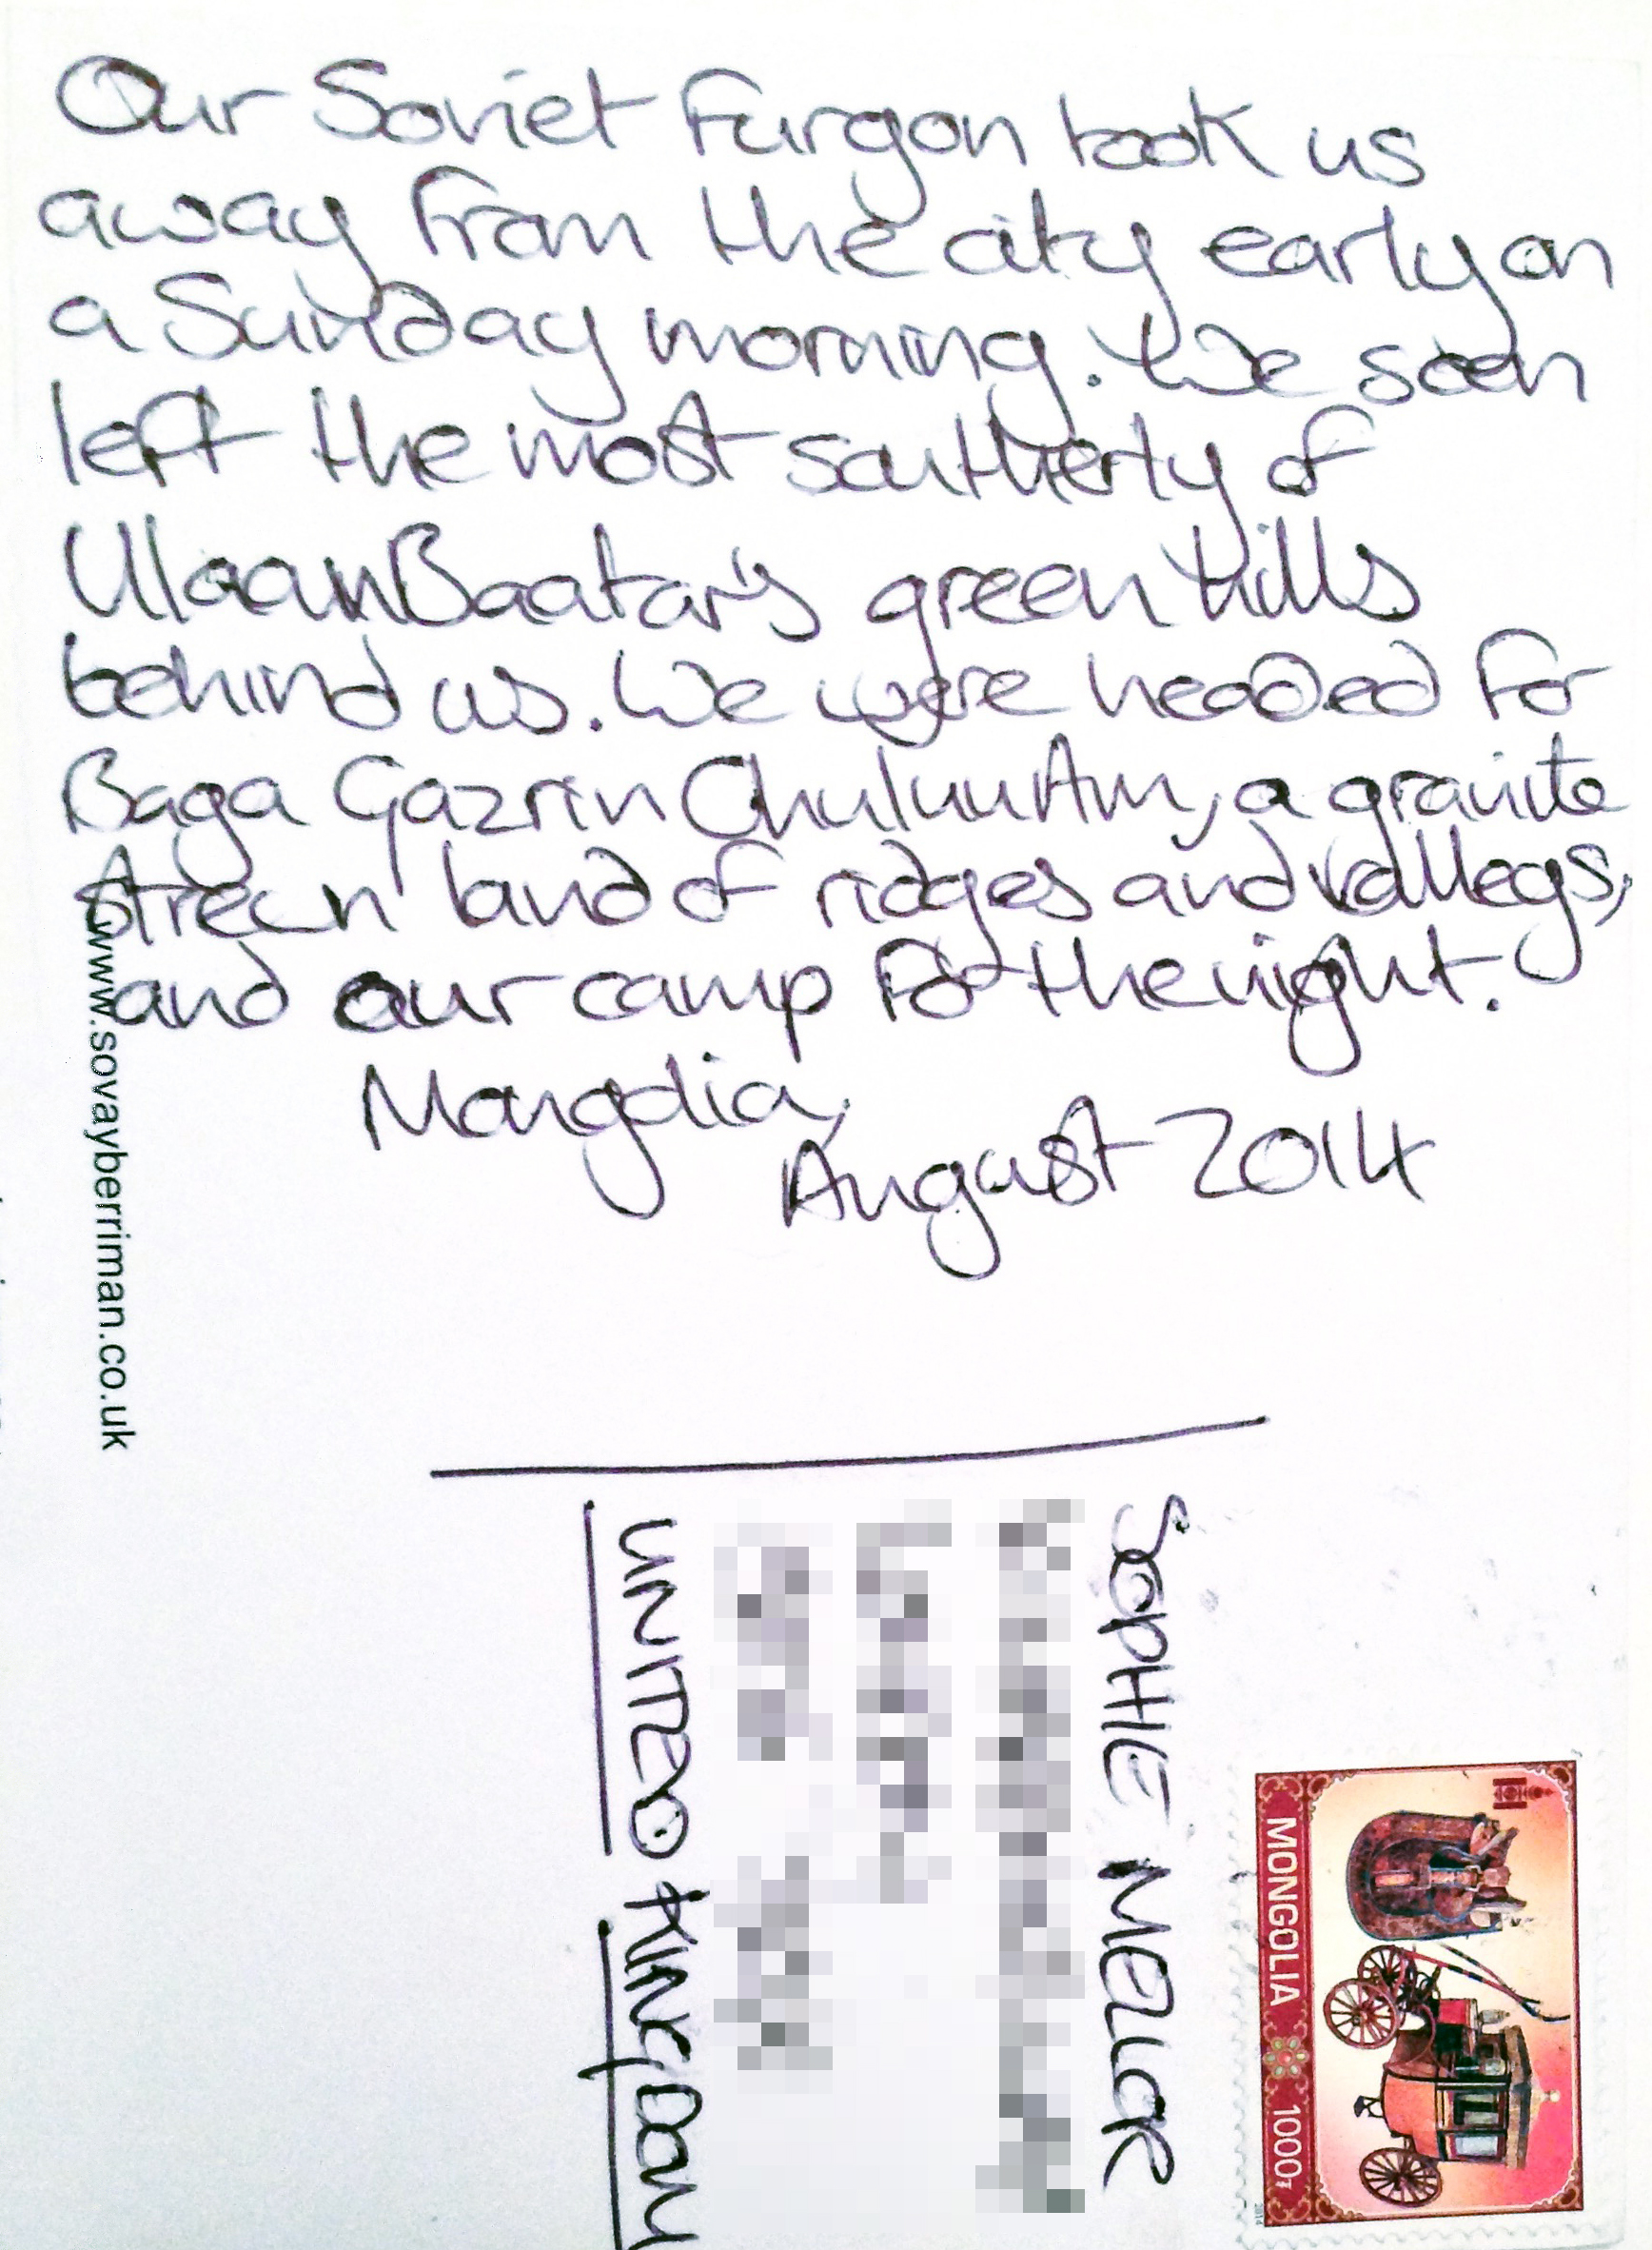 Our Soviet Furgon took us
away from the city early on
a Sunday morning. We soon
left the most southerly of
UlaanBaatar's green hills
behind us. We were headed for
Baga Gazrin Chuluu Am, a granite
strewn land of ridges and valleys,
and our camp for the night.
Mongolia,
August 2014
www.sovayberriman.co.uk
SOPHIE MELLOR
UNITED KINGDOM
MONGOLIA 1000₮
2014